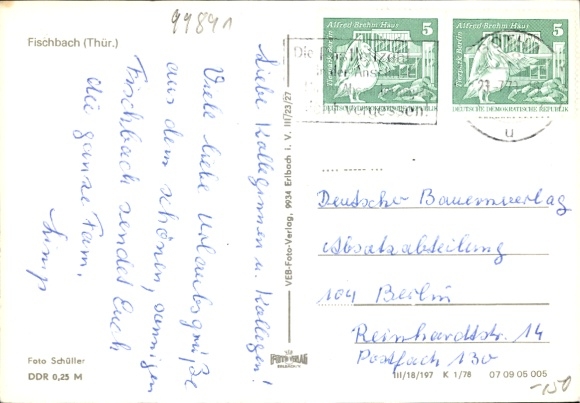 99891
Fischbach (Thür.)
Liebe Kolleginnen u. Kollegen!
Viele liebe Urlaubsgrüße
aus dem schönen, sonnigen
Fischbach sendet Euch
die ganze Fam.
Foto Schüller
DDR 0,25 M
VEB-Foto-Verlag, 9934 Erlbach i. V. III/23/27
FOTO-VERLAG
ERLBACH
Alfred Brehm Haus 5
Tierpark Berlin
DEUTSCHE DEMOKRATISCHE REPUBLIK
Alfred Brehm Haus 5
Tierpark Berlin
DEUTSCHE DEMOKRATISCHE REPUBLIK
Die Postleitzahl
in der Anschrift
nicht vergessen!
u
Deutscher Bauernverlag
Absatzabteilung
104 Berlin
Reinhardtstr. 14
Postfach 130
III/18/197 K 1/78 07 09 05 005
-150